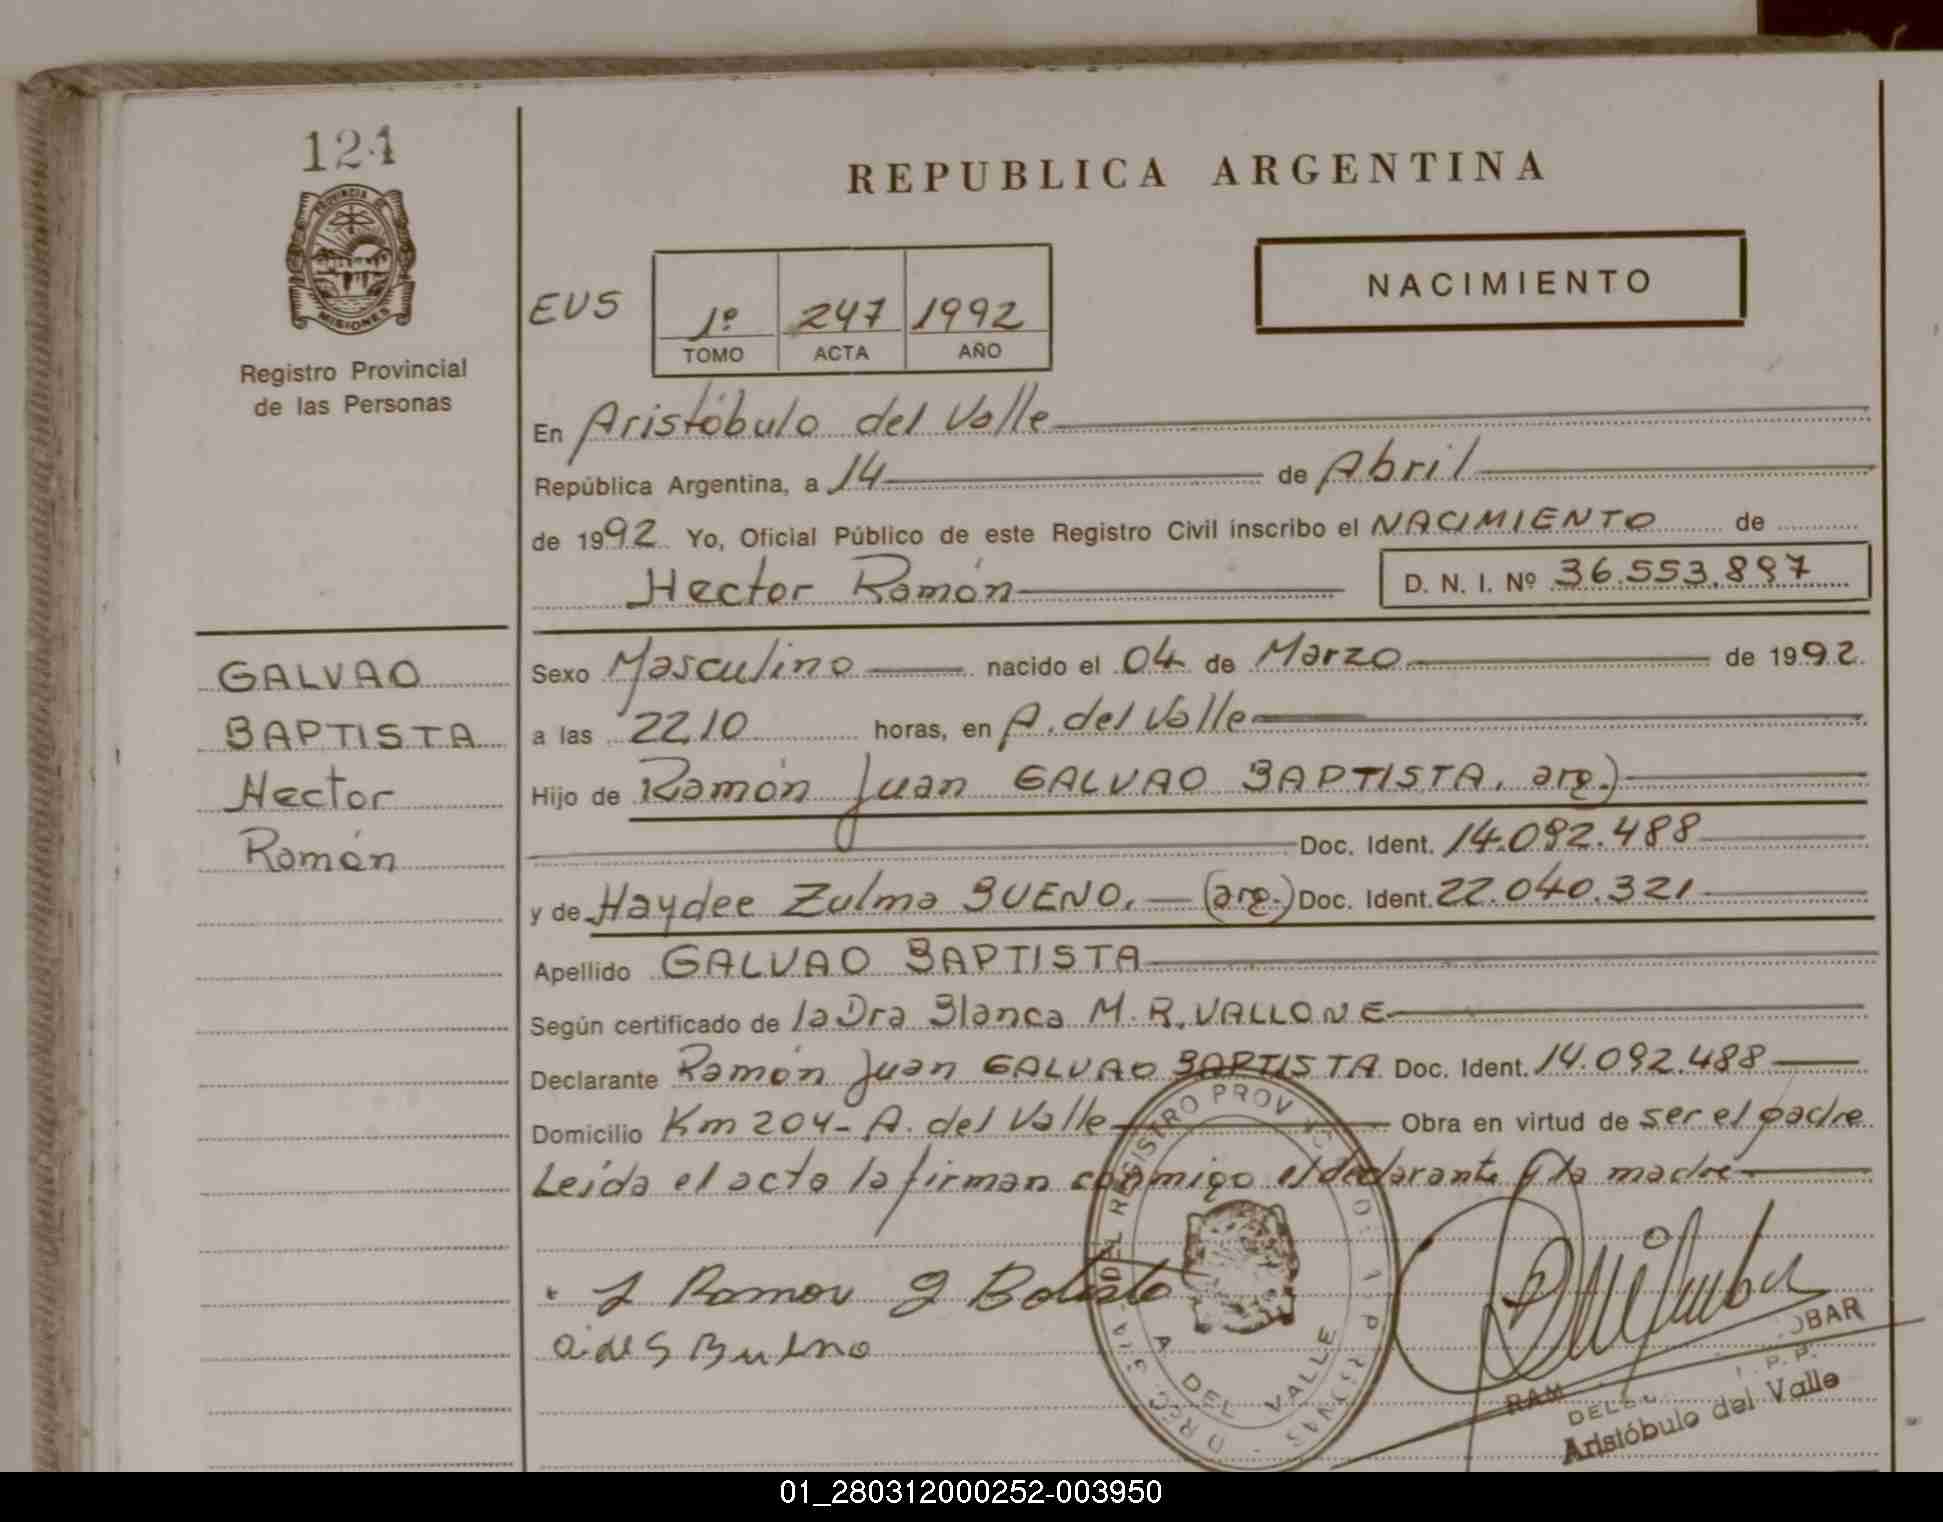 124
PROVINCIA DE
MISIONES
Registro Provincial
de las Personas
GALVAO
BAPTISTA
Hector
Ramón
REPUBLICA ARGENTINA
NACIMIENTO
EUS
1º 247 1992
TOMO ACTA AÑO
En Aristóbulo del Valle
República Argentina, a 14 de Abril
de 1992 Yo, Oficial Público de este Registro Civil inscribo el NACIMIENTO de
Hector Ramón D. N. I. Nº 36.553.897
Sexo Masculino nacido el 04 de Marzo de 1992.
a las 22,10 horas, en A. del Valle
Hijo de Ramón Juan GALVAO BAPTISTA, arg.)
Doc. Ident. 14.092.488
y de Haydee Zulma BUENO. (arg.) Doc. Ident. 22.040.321
Apellido GALVAO BAPTISTA
Según certificado de la Dra Blanca M. R. VALLONE
Declarante Ramón Juan GALVAO BAPTISTA Doc. Ident. 14.092.488
Domicilio Km 204 - A. del Valle Obra en virtud de ser el padre
Leída el acta la firman conmigo el declarante y la madre
Ramon
Bueno
DEL REGISTRO PROV
A. DEL VALLE
Aristóbulo del Valle
01_280312000252-003950